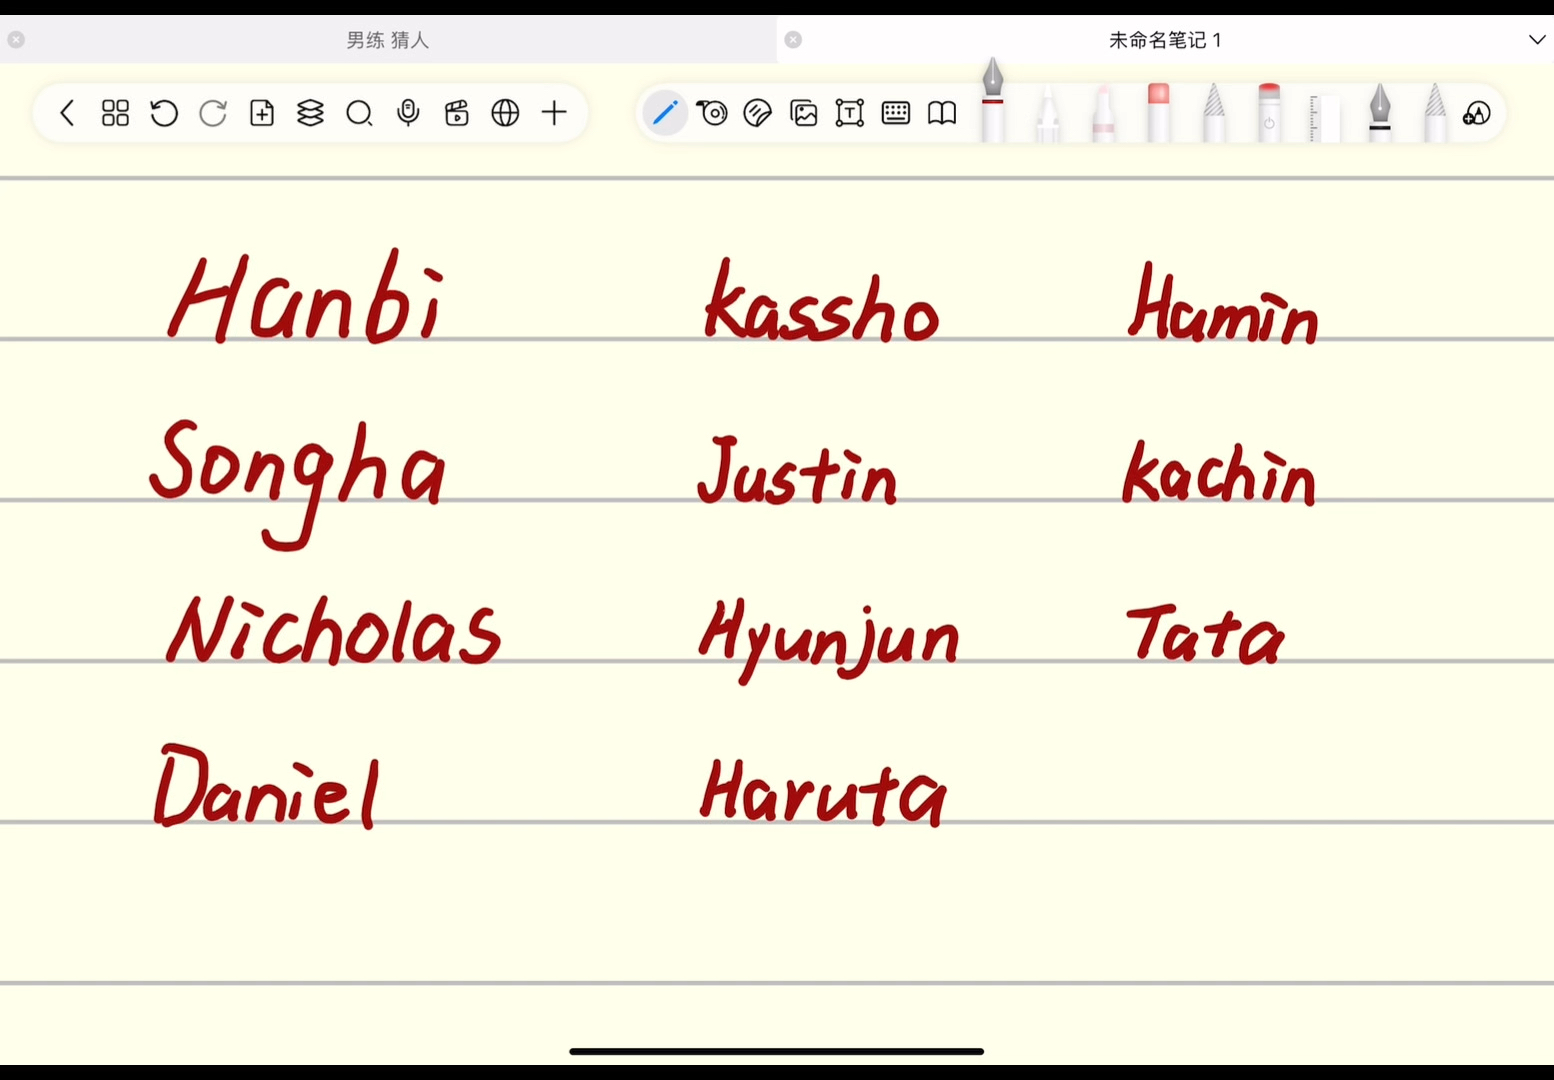 男练 猜人 未命名笔记 1
Hanbi kassho Hamin
Songha Justin kachin
Nicholas Hyunjun Tata
Daniel Haruta